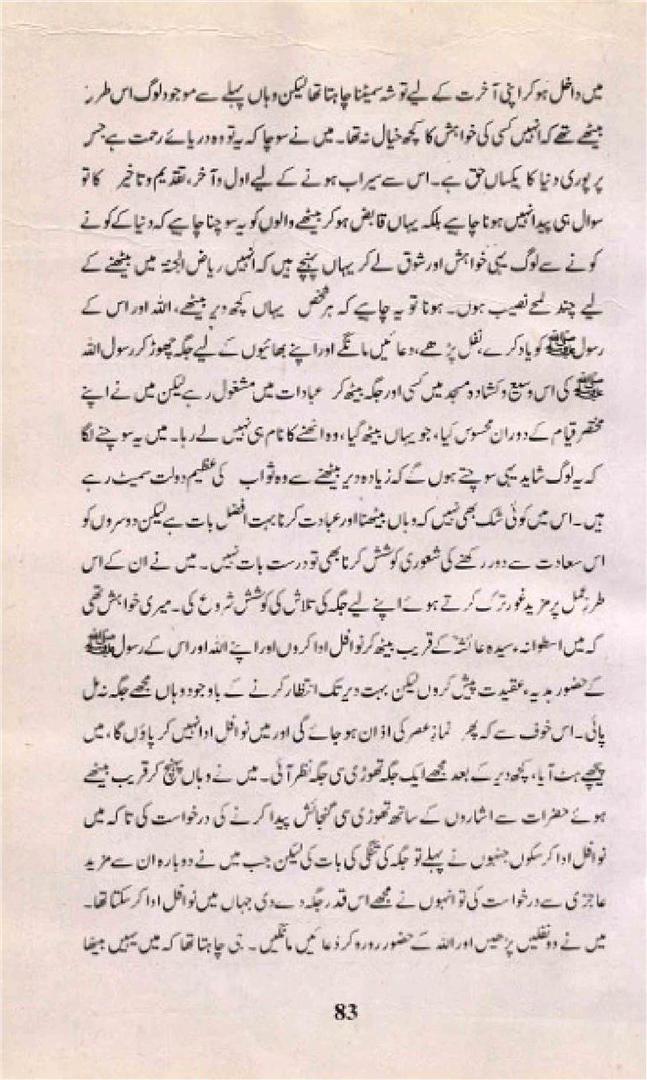 میں داخل ہوکر اپنی آخرت کے لیے توشہ سمیٹنا چاہتا تھا لیکن وہاں پہلے سے موجود لوگ اس طرر
بیٹھے تھے کہ انہیں کسی کی خواہش کا کچھ خیال نہ تھا۔ میں نے سوچا کہ یہ تو وہ دریائے رحمت ہے جس
پر پوری دنیا کا یکساں حق ہے۔ اس سے سیراب ہونے کے لیے اول و آخر، تقدیم و تاخیر کا تو
سوال ہی پیدا نہیں ہونا چاہیے بلکہ یہاں قابض ہوکر بیٹھنے والوں کو یہ سوچنا چاہیے کہ دنیا کے کونے
کونے سے لوگ یہی خواہش اور شوق لے کر یہاں پہنچے ہیں کہ انہیں ریاض الجنۃ میں بیٹھنے کے
لیے چند لمحے نصیب ہوں۔ ہونا تو یہ چاہیے کہ ہر شخص یہاں کچھ دیر بیٹھے، اللہ اور اس کے
رسول ﷺ کو یاد کرے، نفل پڑھے، دعائیں مانگے اور اپنے بھائیوں کے لیے جگہ چھوڑ کر رسول اللہ
ﷺ کی اس وسیع و کشادہ مسجد میں کسی اور جگہ بیٹھ کر عبادات میں مشغول رہے لیکن میں نے اپنے
مختصر قیام کے دوران محسوس کیا، جو یہاں بیٹھ گیا، وہ اٹھنے کا نام ہی نہیں لے رہا۔ میں یہ سوچنے لگا
کہ یہ لوگ شاید یہی سوچتے ہوں گے کہ زیادہ دیر بیٹھنے سے وہ ثواب کی عظیم دولت سمیٹ رہے
ہیں۔ اس میں کوئی شک بھی نہیں کہ وہاں بیٹھنا اور عبادت کرنا بہت افضل بات ہے لیکن دوسروں کو
اس سعادت سے دور رکھنے کی شعوری کوشش کرنا بھی تو درست بات نہیں۔ میں نے ان کے اس
طرز عمل پر مزید غور ترک کرتے ہوئے اپنے لیے جگہ کی تلاش کی کوشش شروع کی۔ میری خواہش تھی
کہ میں اسطوانہ ء سیدہ عائشہؓ کے قریب بیٹھ کر نوافل ادا کروں اور اپنے اللہ اور اس کے رسول ﷺ
کے حضور ہدیہ ء عقیدت پیش کروں لیکن بہت دیر تک انتظار کرنے کے باوجود وہاں مجھے جگہ نہ مل
پائی۔ اس خوف سے کہ پھر نماز عصر کی اذان ہو جائے گی اور میں نوافل ادا نہیں کر پاؤں گا، میں
پیچھے ہٹ آیا، کچھ دیر کے بعد مجھے ایک جگہ تھوڑی سی جگہ نظر آئی۔ میں نے وہاں پہنچ کر قریب بیٹھے
ہوئے حضرات سے اشاروں کے ساتھ تھوڑی سی گنجائش پیدا کرنے کی درخواست کی تاکہ میں
نوافل ادا کر سکوں جنہوں نے پہلے تو جگہ کی تنگی کی بات کی لیکن جب میں نے دوبارہ ان سے مزید
عاجزی سے درخواست کی تو انہوں نے مجھے اس قدر جگہ دے دی جہاں میں نوافل ادا کر سکتا تھا۔
میں نے دو نفلیں پڑھیں اور اللہ کے حضور رو رو کر دُعائیں مانگیں۔ جی چاہتا تھا کہ میں یہیں بیٹھا
83